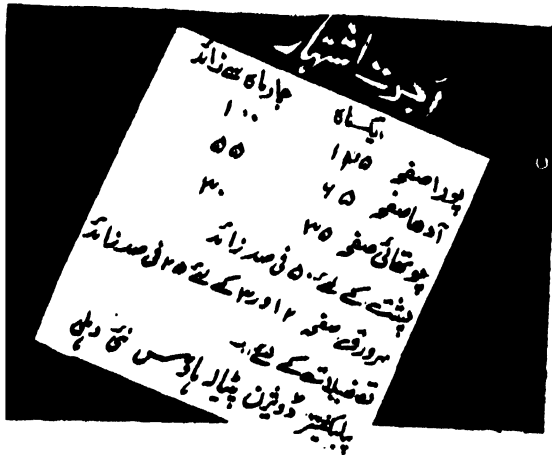 اجرت اشتہار
ایکماہ چارماہ سے زائد
پورا صفحہ ۱۲۵ ۱۰۰
آدھا صفحہ ۶۵ ۵۵
چوتھائی صفحہ ۳۵ ۳۰
پشت کے لئے ۵۰ فی صد زائد
سرورق صفحہ ۲ اور ۳ کے لئے ۲۵ فی صد زائد
تفصیلات کے لئے :۔
پبلیکیشنز ڈویژن پٹیالہ ہاؤس نئی دہلی